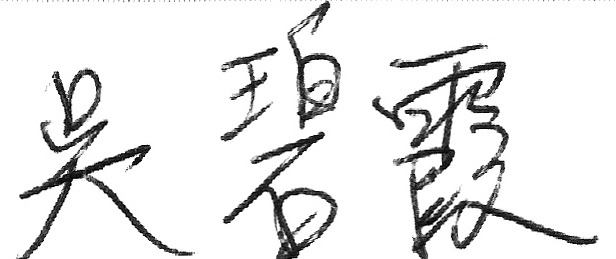 吴碧霞